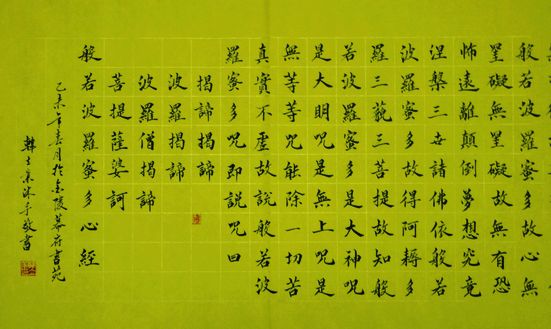 般若波羅蜜多故心無
罣礙無罣礙故無有恐
怖遠離顛倒夢想究竟
涅槃三世諸佛依般若
波羅蜜多故得阿耨多
羅三藐三菩提故知般
若波羅蜜多是大神咒
是大明咒是無上咒是
無等等咒能除一切苦
真實不虛故說般若波
羅蜜多咒即說咒曰
揭諦揭諦
波羅揭諦
波羅僧揭諦
菩提薩婆訶
般若波羅蜜多心經
乙未年春月於金陵幕府書苑
沐手敬書